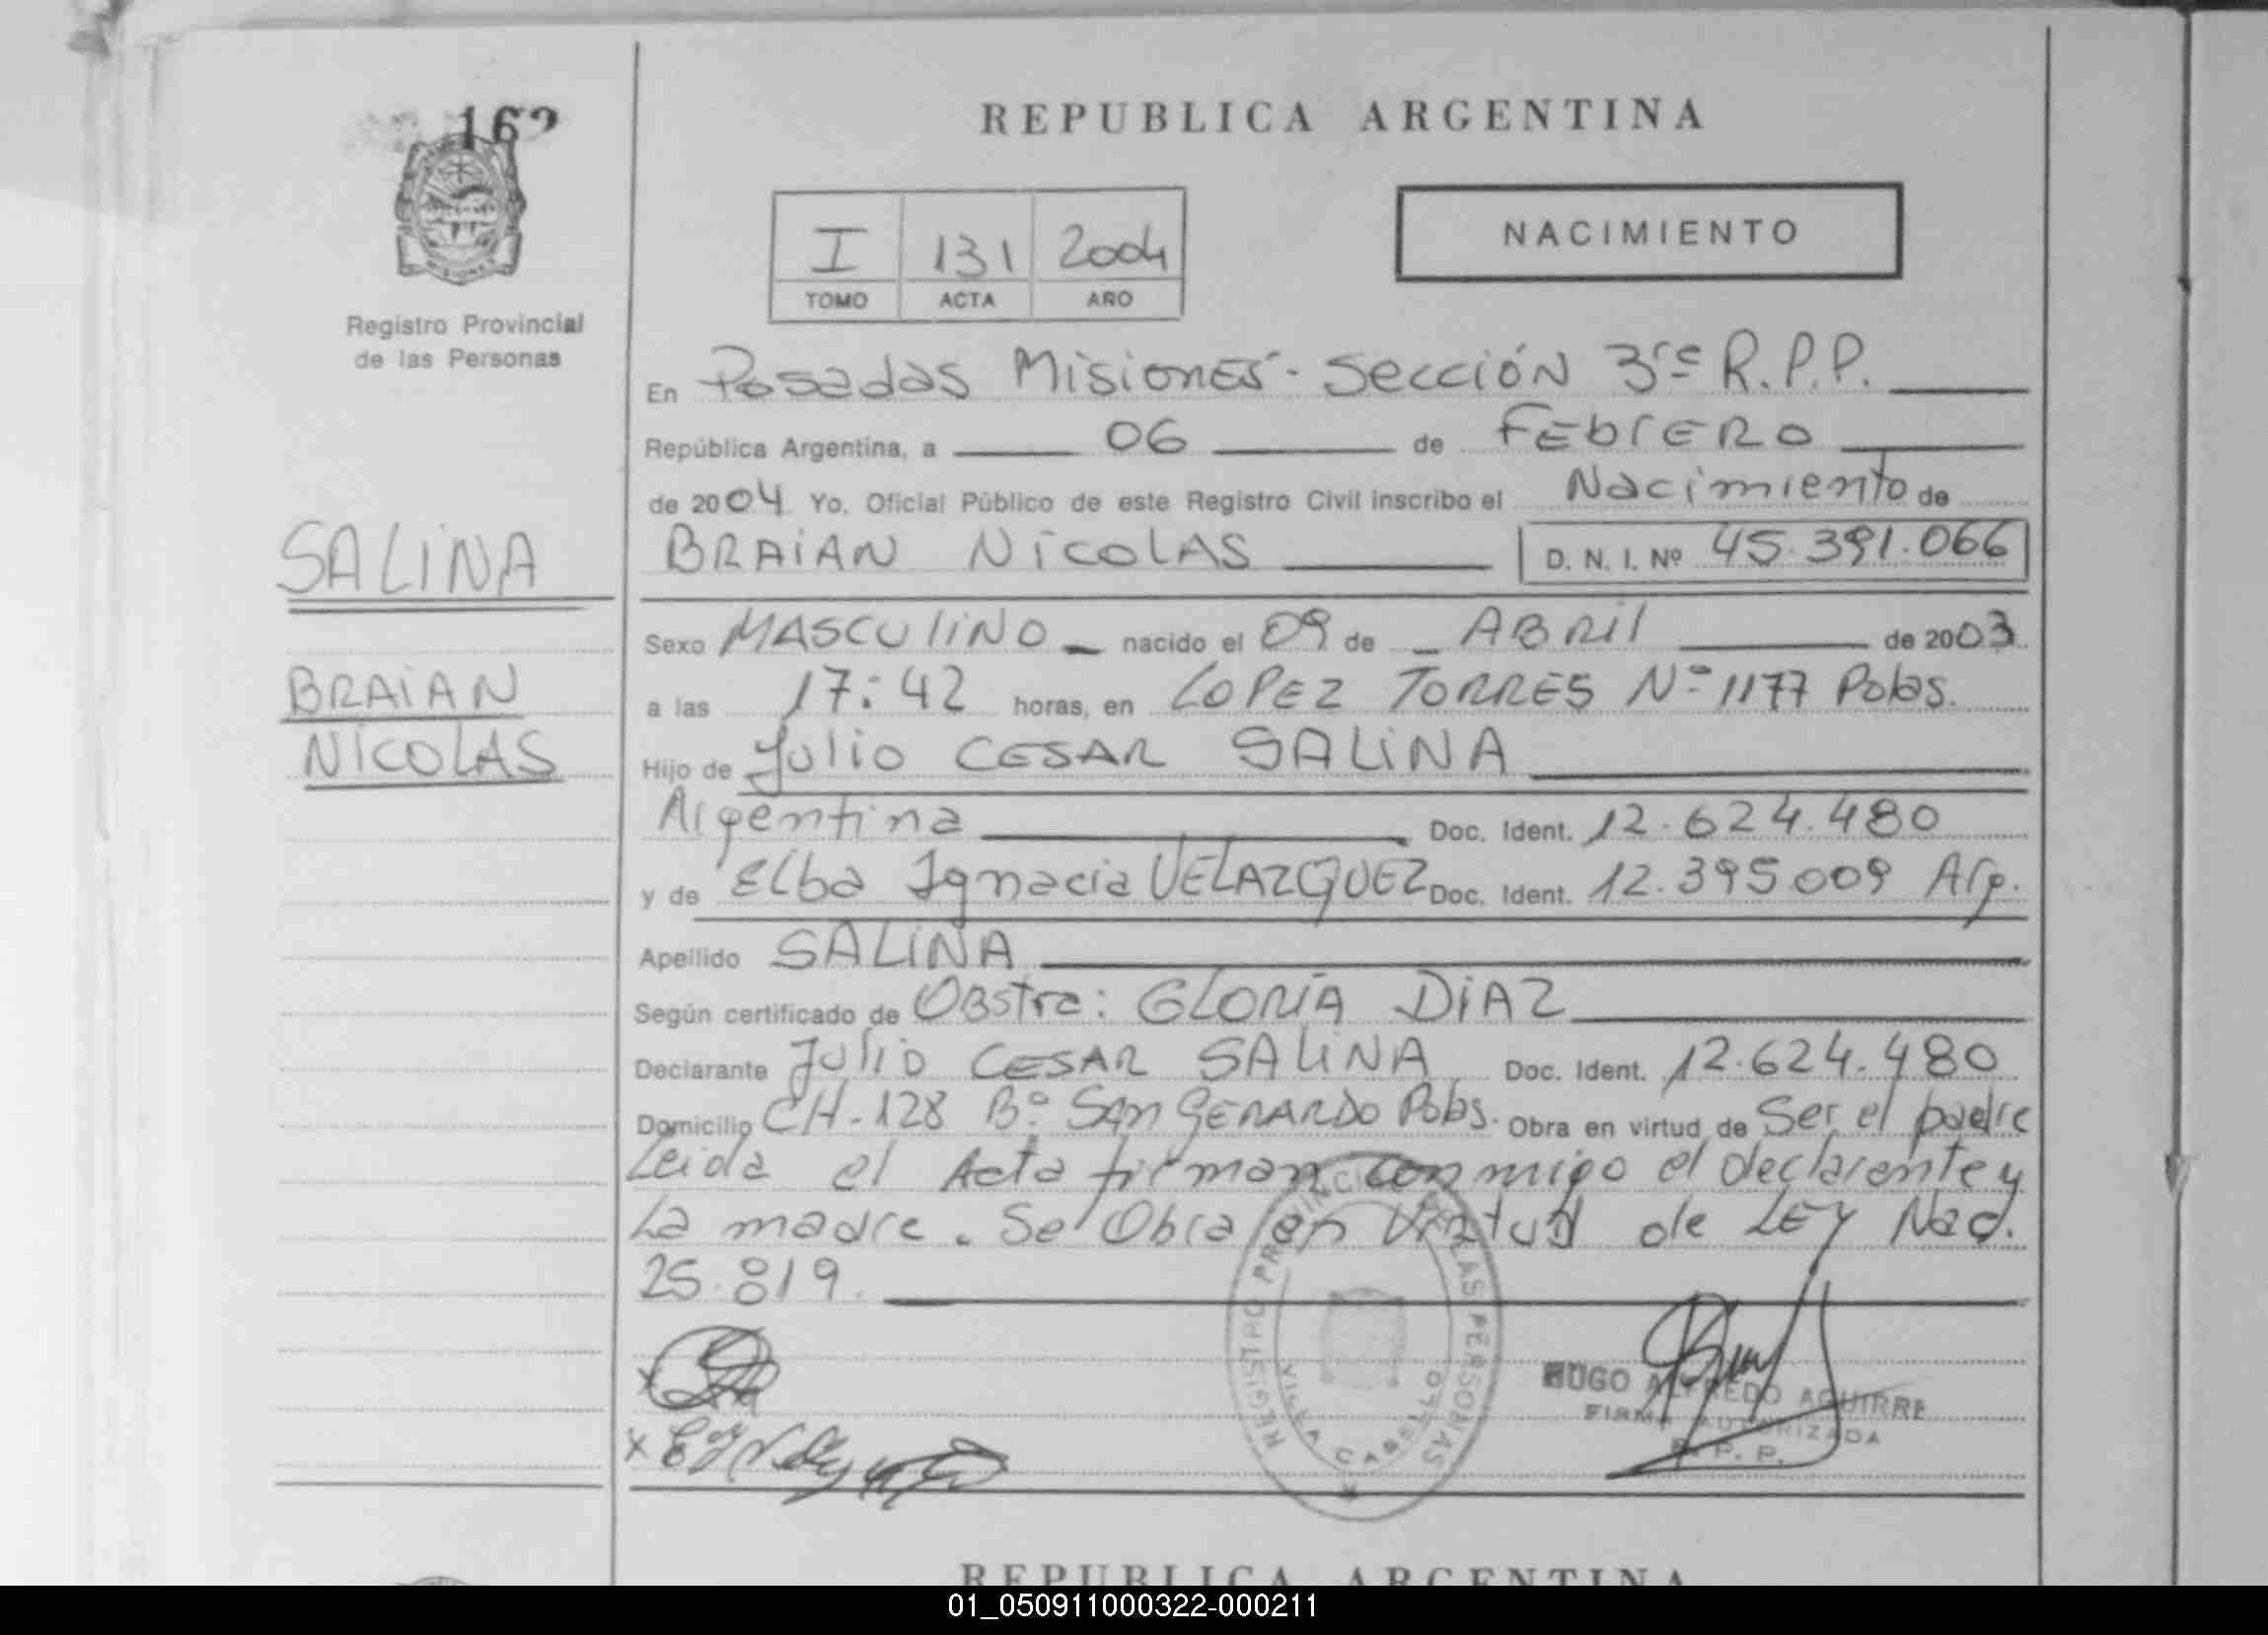 162
REPUBLICA ARGENTINA
I 131 2004
TOMO ACTA AÑO
NACIMIENTO
MISIONES
Registro Provincial
de las Personas
En Posadas Misiones - Sección 3ra R.P.P.
República Argentina, a 06 de FEbrERO
de 2004 Yo, Oficial Público de este Registro Civil inscribo el Nacimiento de
BRAIAN NICOLAS D. N. I. Nº 45.391.066
SALINA
BRAIAN
NICOLAS
Sexo MASCULINO nacido el 09 de ABRIL de 2003
a las 17:42 horas, en LOPEZ TORRES Nº 1177 Pdas.
Hijo de Julio CESAR SALINA
Argentina Doc. Ident. 12.624.480
y de Elba Ignacia VELAZQUEZ Doc. Ident. 12.395.009 Arg.
Apellido SALINA
Según certificado de Obstra: GLORIA DIAZ
Declarante Julio CESAR SALINA Doc. Ident. 12.624.480
Domicilio CH-128 Bº SAN GERARDO Pdas. Obra en virtud de Ser el padre
Leida el Acta firman conmigo el declarante y
La madre. Se Obra en Virtud de LEY Nac.
25.819.
REGISTRO PROVINCIAL DE LAS PERSONAS
VILLA CABELLO
HUGO ALFREDO AGUIRRE
FIRMA AUTORIZADA
R. P. P.
REPUBLICA ARGENTINA
01_050911000322-000211